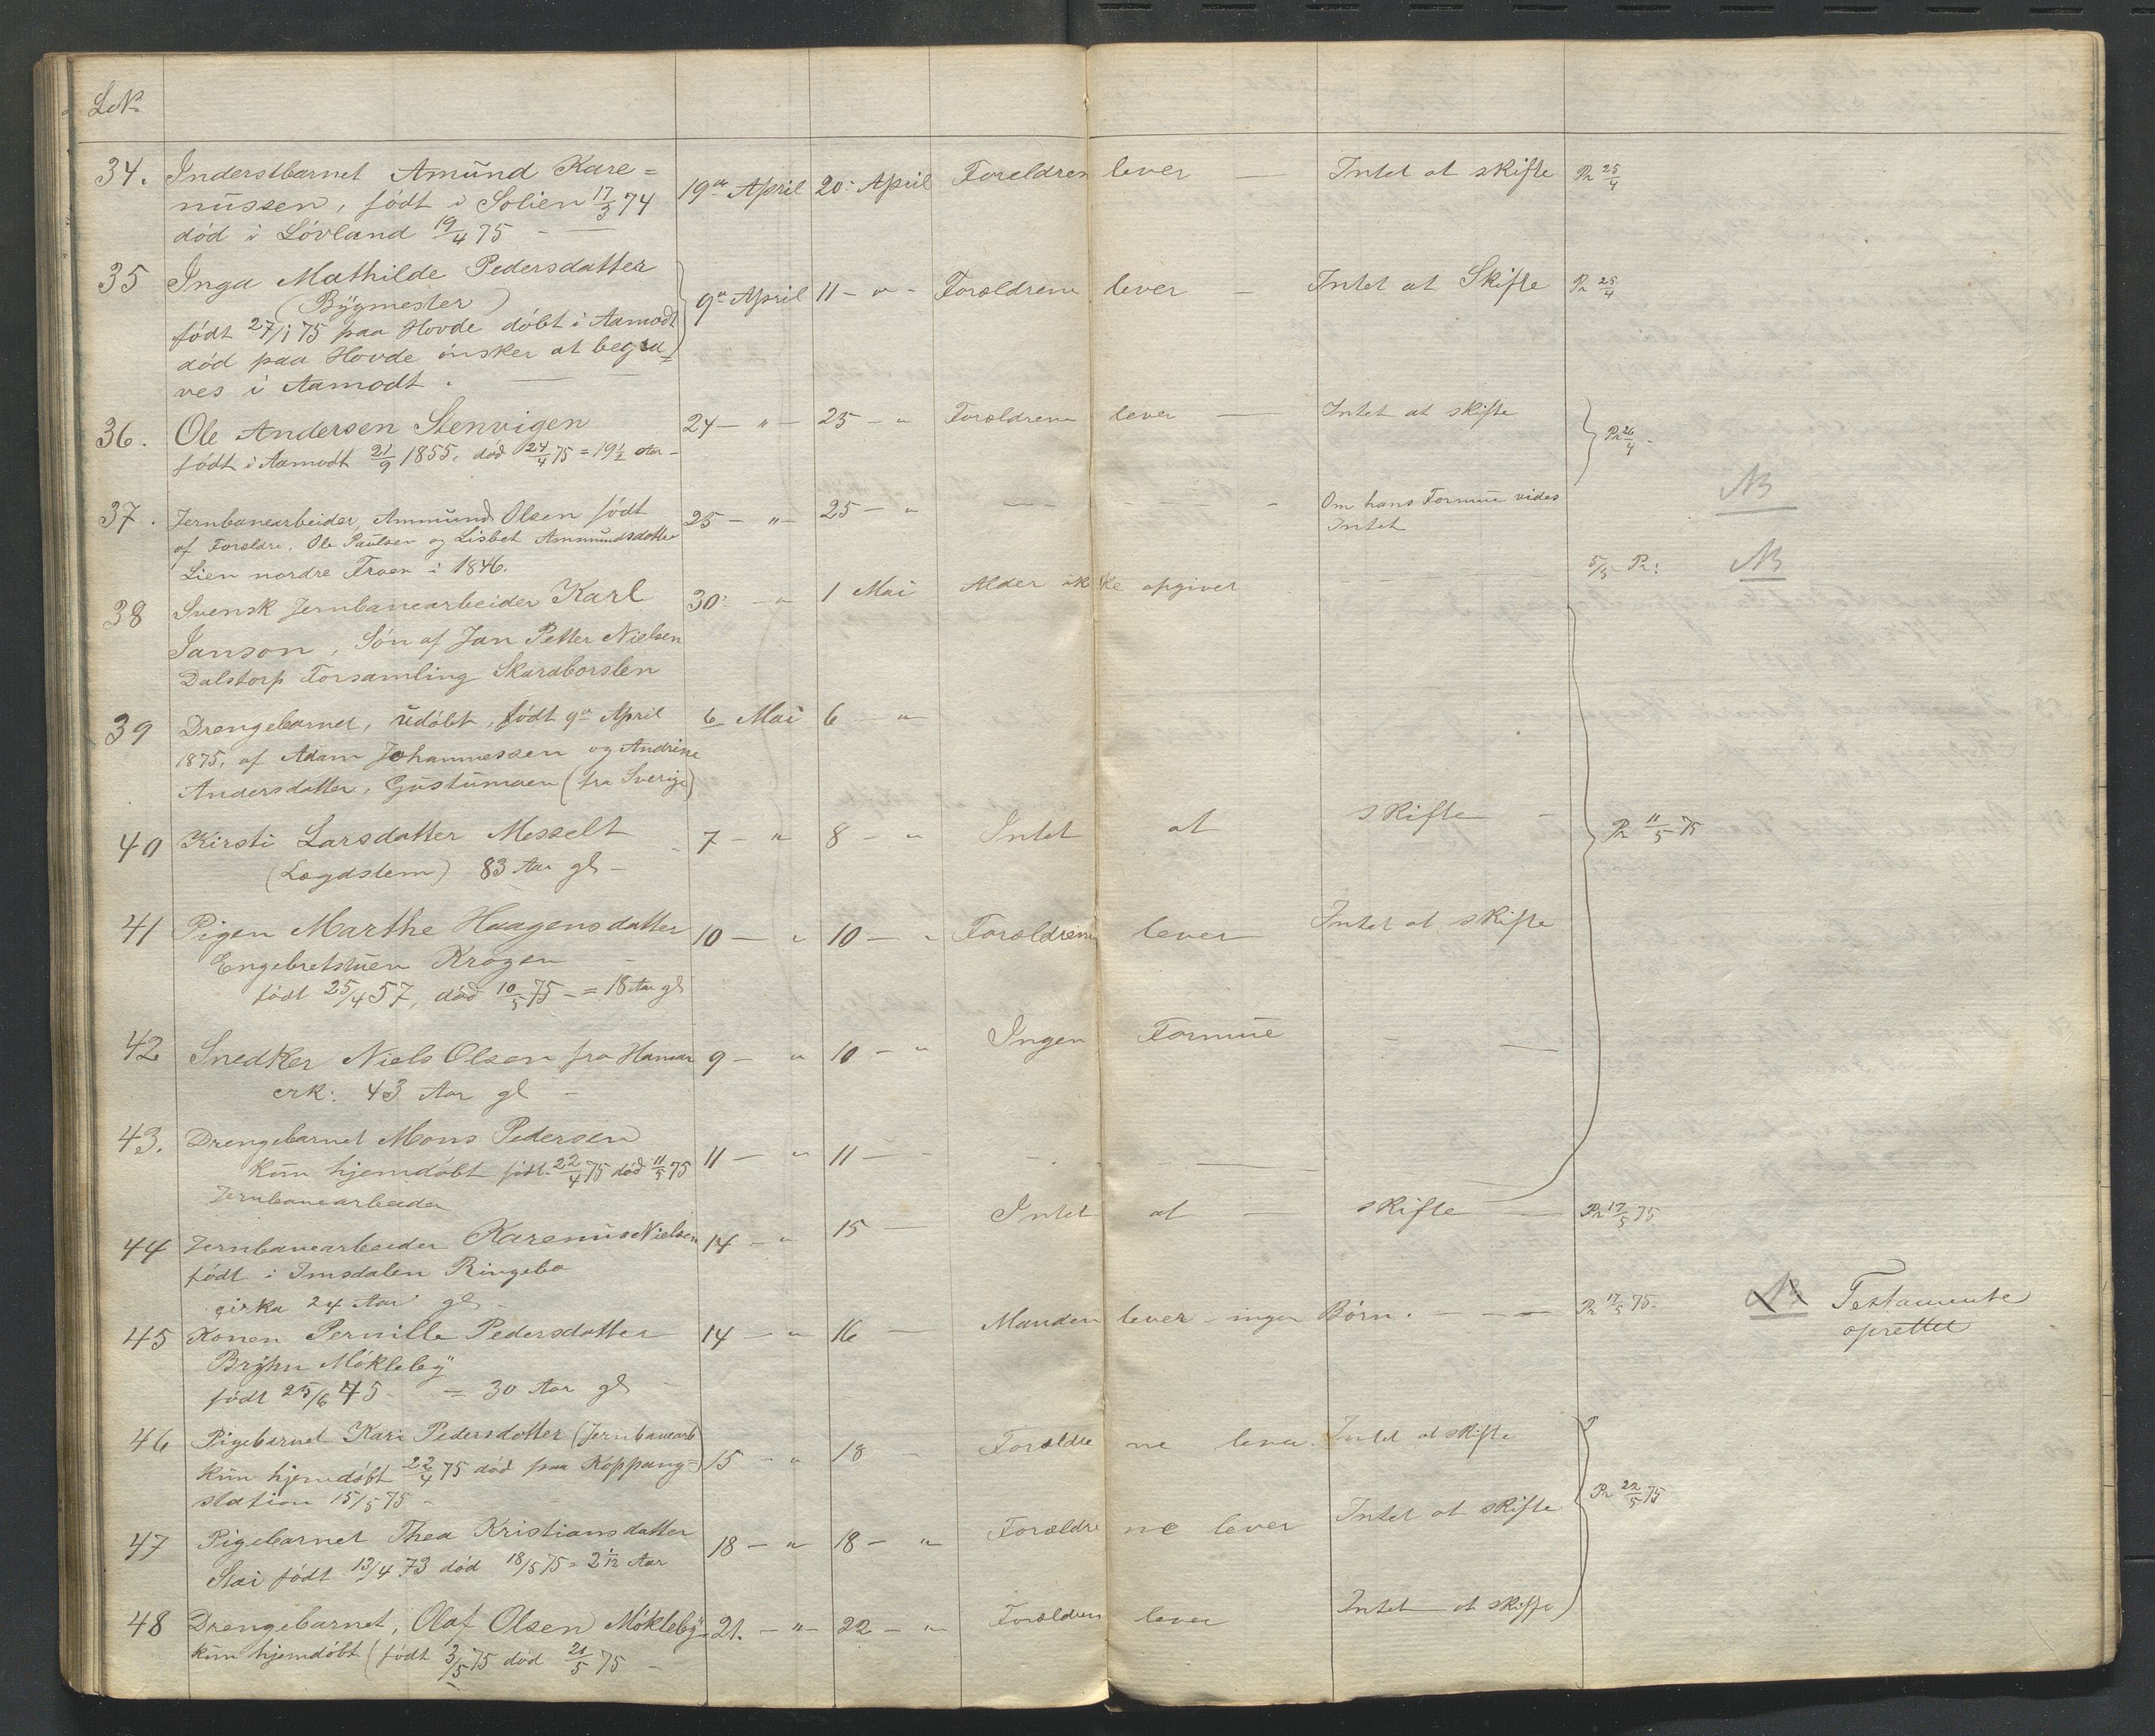 LNo
34. Inderstbarnet Amund Kare= 19de April 20: April Forældren lever — Intet at skifte Pr 25/4
nussen, født i Solien 17/3 74
død i Løvland 19/4 75 - —
35 Inga Mathilde Pedersdatter 9de April 11 — " - Forældrene lever — Intet at Skifte Pr 25/4
(Bygmester)
født 27/1 75 paa Hovde døbt i Aamodt
død paa Hovde ønsker at begra=
ves i Aamodt. — —
36. Ole Andersen Stenvigen 24 — " — 25 — " Forældrene lever — Intet at skifte Pr 26/4 -
født i Aamodt 21/9 1855. død 24/4 75 = 19½ Aar —
37. Jernbanearbeider, Ammund Olsen født 25 — " — 25 — " — - - - Om hans Formue vides NB
af Forældre. Ole Paulsen og Lisbet Ammundsdatter Intet
Lien nordre Troen i 1846.
38 Svensk Jernbanearbeider Karl 30: — " 1 Mai Alder ikke opgiver - — 5/5 Pr: NB
Janson, Søn af Jan Petter Nielsen
Dalstorp Forsamling Skaraborslen
39 Drengebarnet, udøbt, født 9de April 6 Mai 6 — "
1875, af Adam Johannessen og Andrine
Andersdatter, Gustumoen (fra Sverige)
40 Kirsti Larsdatter Messelt - 7 — " 8 — " Intet at skifte — Pr 11/5 75
(Lægdslem) 83 Aar gl —
41 Pigen Marthe Haagensdatter 10 — " 10 — " Forældrene lever Intet at skifte
Engebretstuen Krogen —
født 25/4 57, død 10/5 75 — = 18 Aar gl
42 Snedker Niels Olsen fra Hamar 9 — " 10 — " Ingen Formue - —
crk: 43 Aar gl —
43. Drengebarnet Mons Pedersen 11 — " 11 — - - - —
Kun hjemdøbt født 22/4 75 død 11/5 75
Jernbanearbeider
44 Jernbanearbeider Karenus Nielsen 14 — " 15 Intet at — skifte — Pr 17/5 75
født i Imsdalen Ringebo
cirka 24 Aar gl -
45 Konen Pernille Pedersdatter 14 — " 16 — Manden lever — ingen Børn. — — — Pr 17/5 75. NB Testamente
Bryhn Møkleby oprettet
født 25/6 45 - = 30 Aar gl -
46 Pigebarnet Kari Pedersdatter (Jernbanearb) 15 — " 18 - Forældrene lever. Intet at skifte
Kun hjemdøbt 22/4 75 død paa Koppang=
station 15/5 75 - Pr 22/5 75
47 Pigebarnet Thea Kristiansdatter 18 — " 18 — " Forældrene lever Intet at skifte
Stai født 13/4 73 død 18/5 75 = 2 1/12 Aar
48 Drengebarnet, Olaf Olsen Møkleby 21. — " — 22 — " Forældren lever Intet at skifte
Kun hjemdøbt (født 3/5 75 død 21/5 75 —